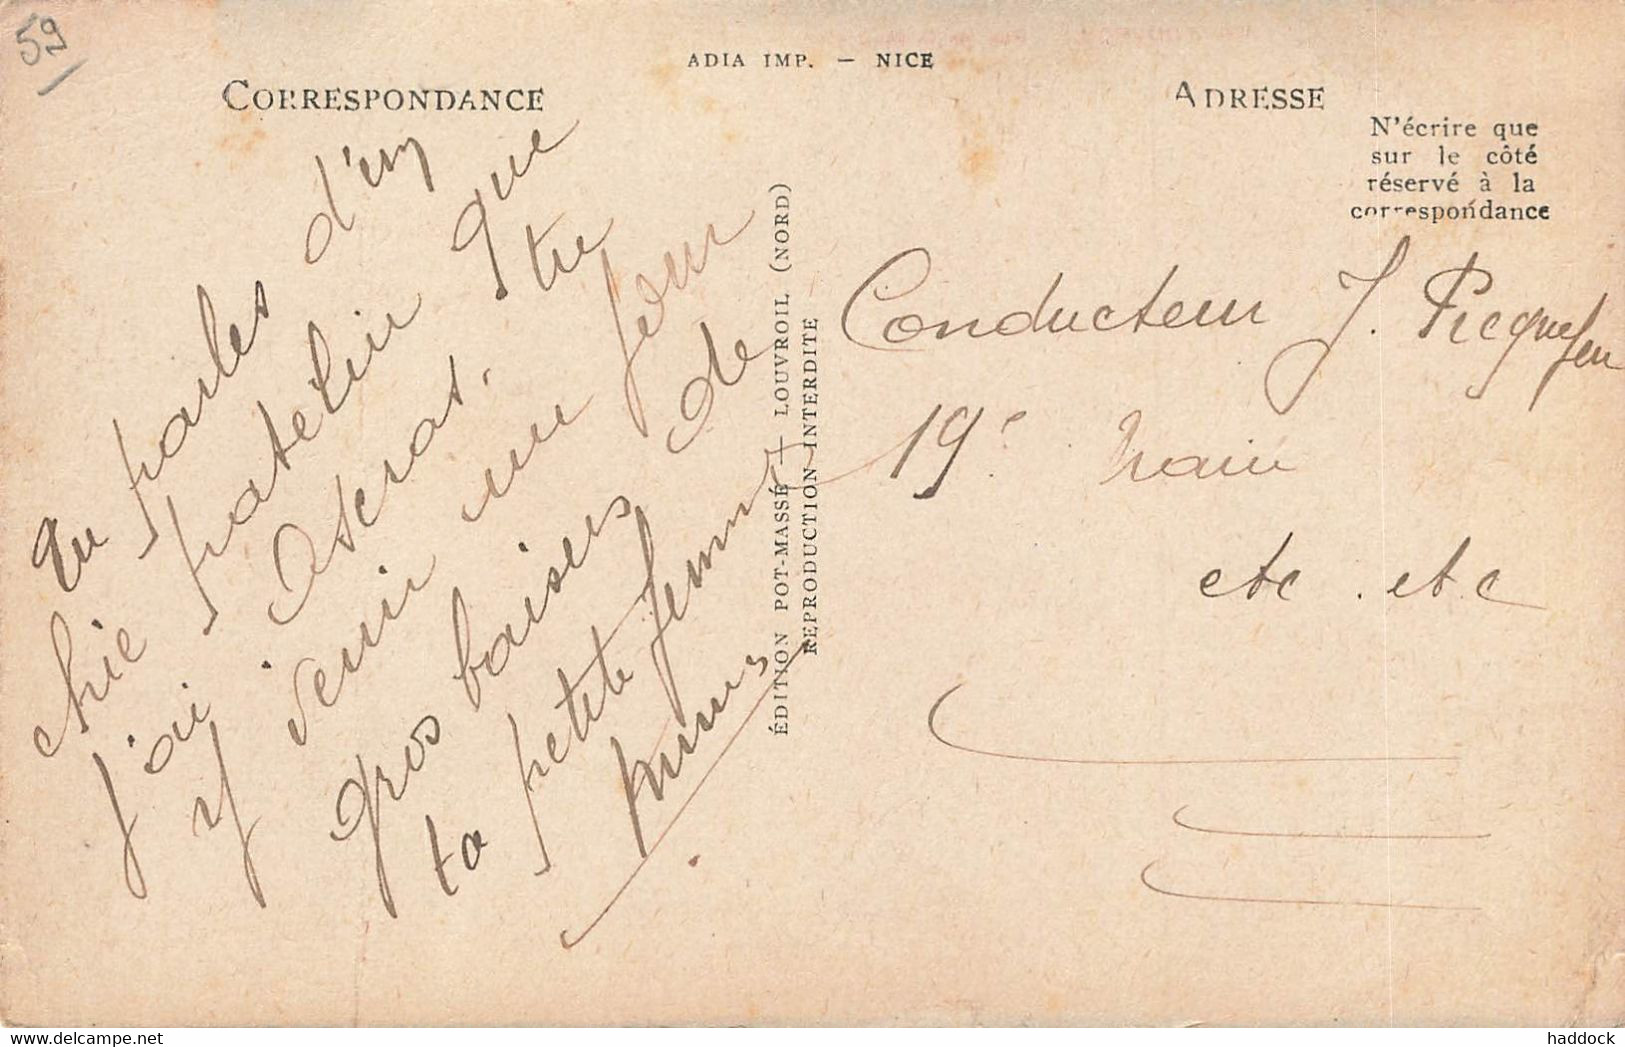 59
ADIA IMP. — NICE
CORRESPONDANCE
Tu parles d'un
chic patelin que
j'ai Tu
y venir un jour
gros baisers de
ta petite femme
ÉDITION POT-MASSÉ — LOUVROIL (NORD)
REPRODUCTION INTERDITE
ADRESSE
N'écrire que
sur le côté
réservé à la
correspondance
Conducteur J. Ricquefeu
19e Train
etc. etc
delcampe.net
haddock